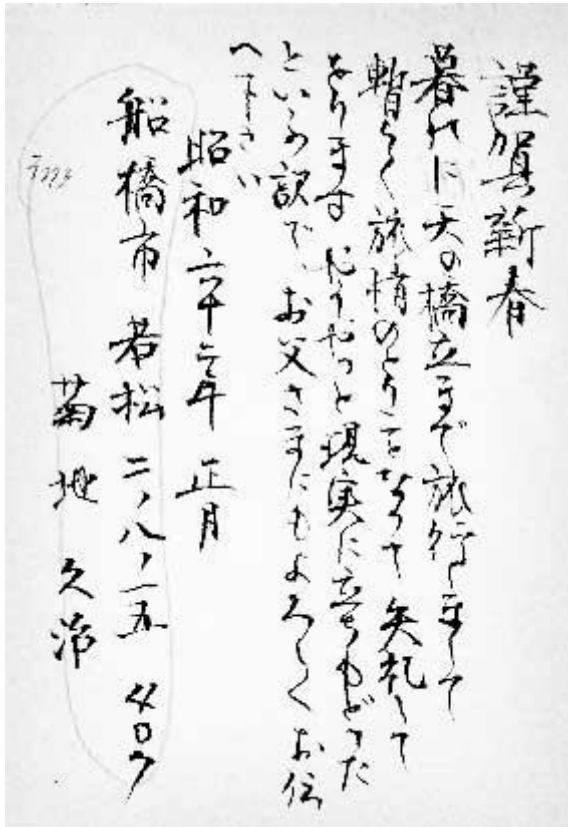 謹賀新春
暮れに天の橋立まで旅行しまして
暫らく旅情のとりことなって失礼して
おります やうやっと現実に立ちもどった
といふ訳で、お父さまにもよろしくお伝
へ下さい
昭和六十三年 正月
船橋市 若松 二ノ八ノ一五 四〇
菊地 久治
〒273